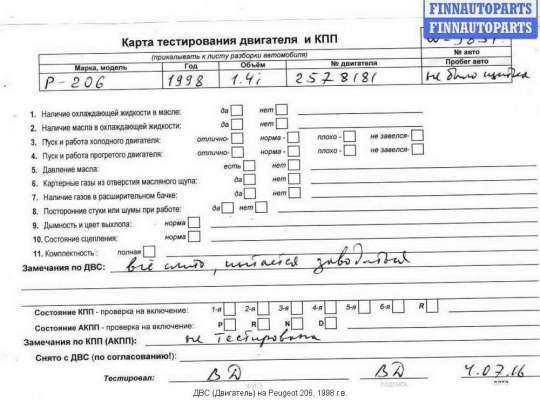 FINNAUTOPARTS
FINNAUTOPARTS
Карта тестирования двигателя и КПП
(прикалывать к листу разборки автомобиля)
№ авто
Марка, модель Год Объём № двигателя Пробег авто
P-206 1998 1.4i 2578181 не было щитка
1. Наличие охлаждающей жидкости в масле: да нет
2. Наличие масла в охлаждающей жидкости: да нет
3. Пуск и работа холодного двигателя: отлично- норма - плохо - не завелся-
4. Пуск и работа прогретого двигателя: отлично- норма - плохо - не завелся-
5. Давление масла: есть нет
6. Картерные газы из отверстия масляного щупа: да нет
7. Наличие газов в расширительном бачке: да нет
8. Посторонние стуки или шумы при работе: да нет
9. Дымность и цвет выхлопа: норма
10. Состояние сцепления: норма
11. Комплектность : полная
Замечания по ДВС: всё слито, пытается заводиться
Состояние КПП - проверка на включение: 1-я 2-я 3-я 4-я 5-я 6-я R
Состояние АКПП - проверка на включение: P R N D
Замечания по КПП (АКПП): не тестирована
Снято с ДВС (по согласованию!):
Тестировал: ВД ВД 4.07.16
ДВС (Двигатель) на Peugeot 206, 1998 г.в.